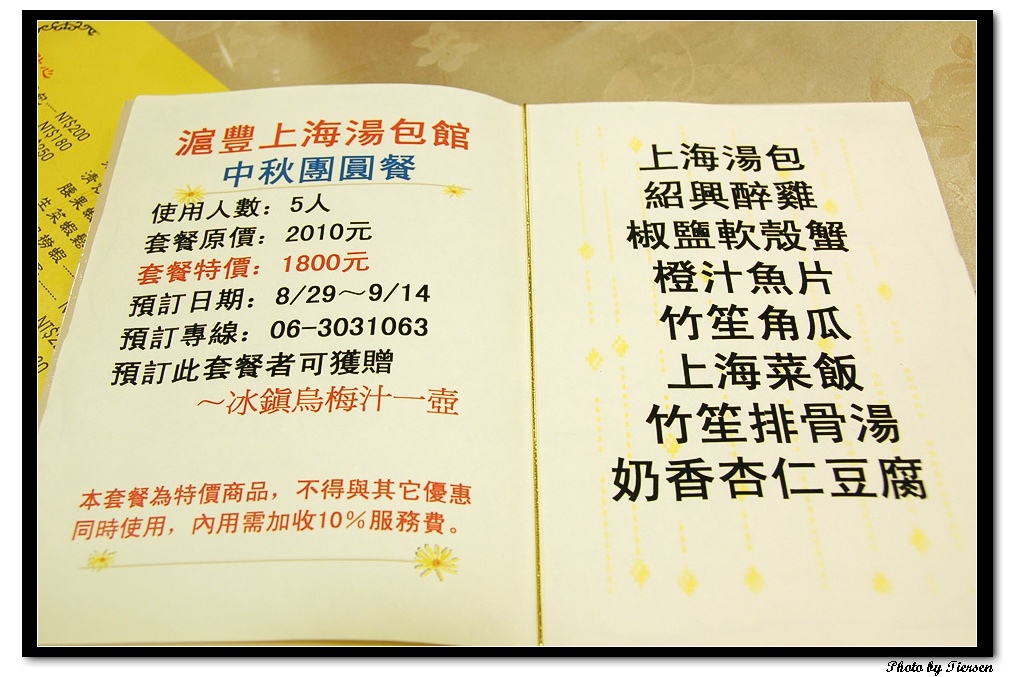 滬豐上海湯包館
中秋團圓餐
使用人數：5人
套餐原價：2010元
套餐特價：1800元
預訂日期：8/29～9/14
預訂專線：06-3031063
預訂此套餐者可獲贈
～冰鎮烏梅汁一壺
本套餐為特價商品，不得與其它優惠
同時使用，內用需加收10%服務費。
上海湯包
紹興醉雞
椒鹽軟殼蟹
橙汁魚片
竹笙角瓜
上海菜飯
竹笙排骨湯
奶香杏仁豆腐
心
包......NT$200
NT$180
250
腰果蝦
生菜蝦鬆
NT$2
Photo by Tiersen